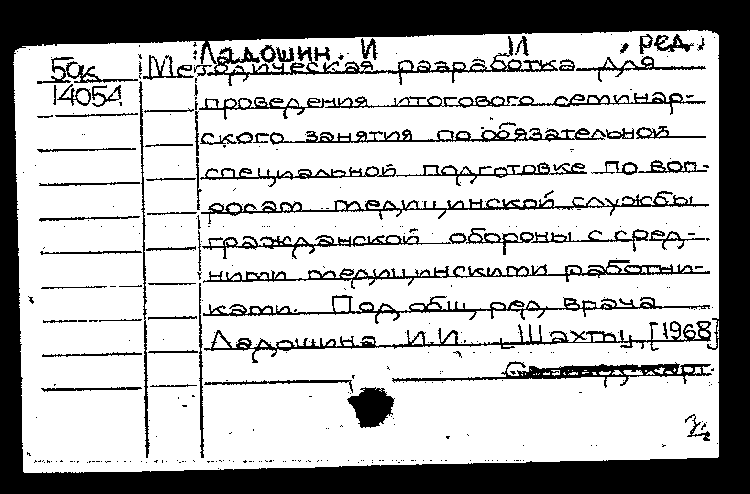 Ладошин, И И , ред.
50к Методическая разработка для
14054 проведения итогового семинар-
ского занятия по обязательной
специальной подготовке по воп-
росам медицинской службы
гражданской обороны с сред-
ними медицинскими работни-
ками. Под общ, ред, врача
Ладошина И.И. Шахты, [1968]